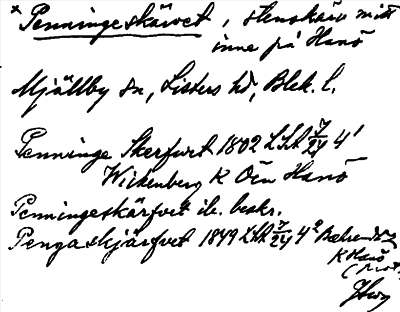 * Penningeskärvet, stenskär mitt
inne på Hanö
Mjällby sn, Listers hd, Blek. l.
Penninge Skerfvet 1802 LSA 7/24 4¹
Wickenberg K Öen Hanö
Penningeskärfvet ib. beskr.
Pengaskjärfvet 1849 LSA 7/24 4²
K Hanö